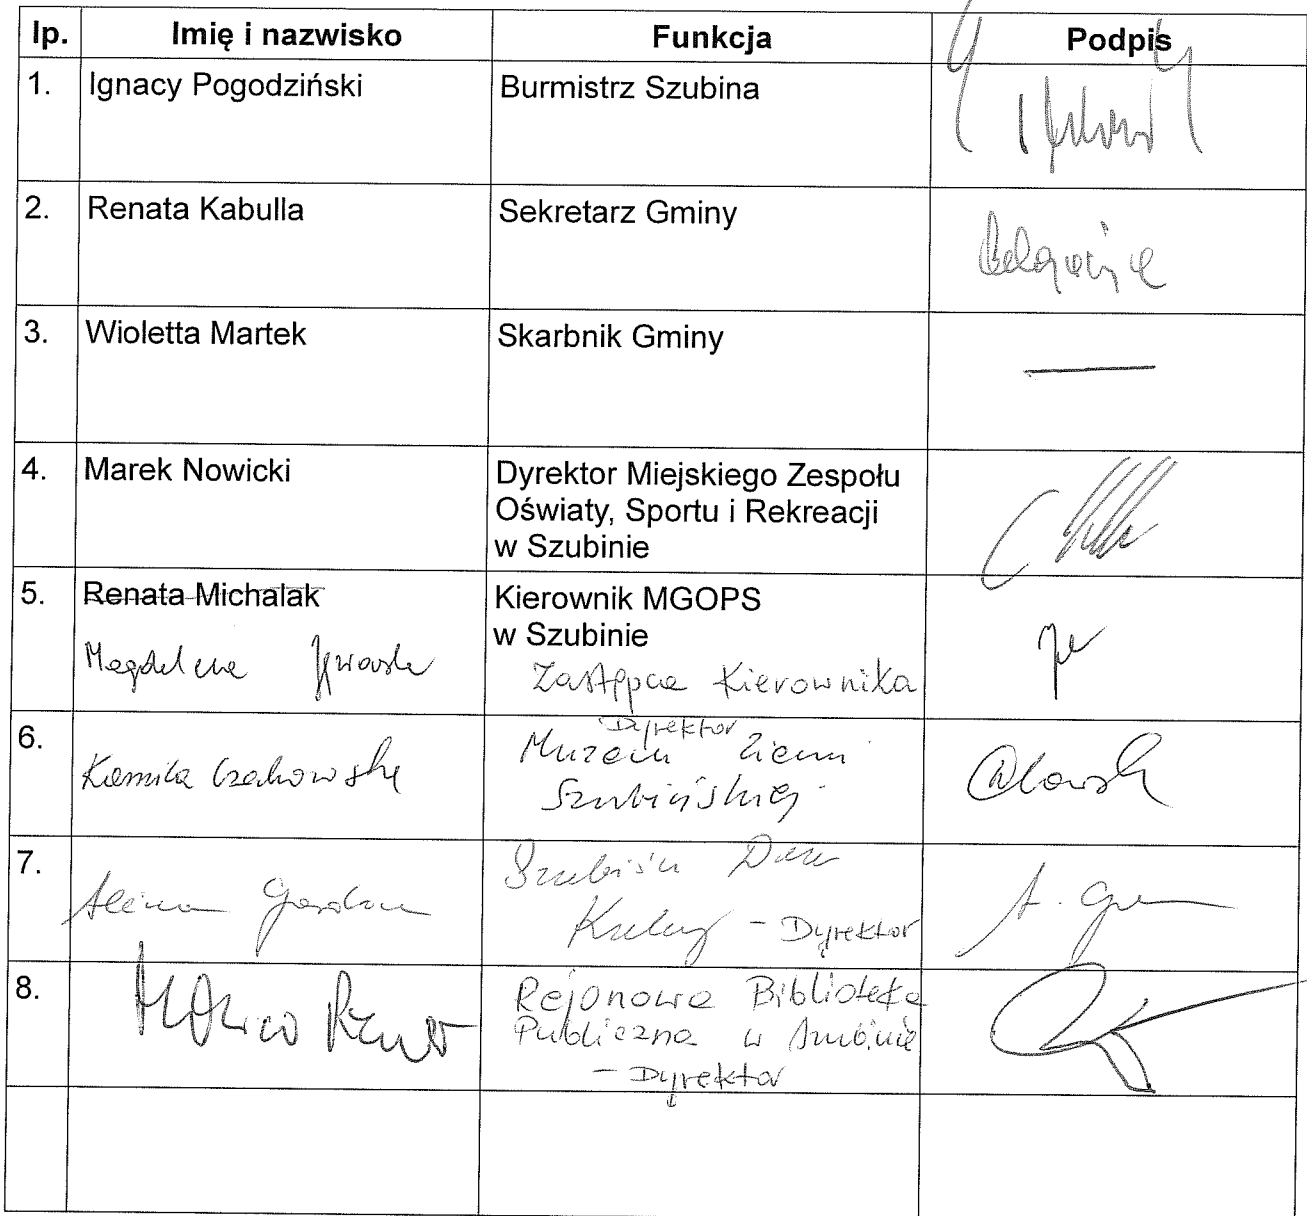 lp. Imię i nazwisko Funkcja Podpis
1. Ignacy Pogodziński Burmistrz Szubina
2. Renata Kabulla Sekretarz Gminy
3. Wioletta Martek Skarbnik Gminy
4. Marek Nowicki Dyrektor Miejskiego Zespołu
Oświaty, Sportu i Rekreacji
w Szubinie
5. Renata Michalak Kierownik MGOPS
w Szubinie
Magdalena Zastępca Kierownika
6. Dyrektor
Kamila Czakowska Muzeum Ziemi
Szubińskiej
7. Szubiński Dom
Kultury - Dyrektor
A.
8. Rejonowa Biblioteka
Publiczna w Szubinie
- Dyrektor